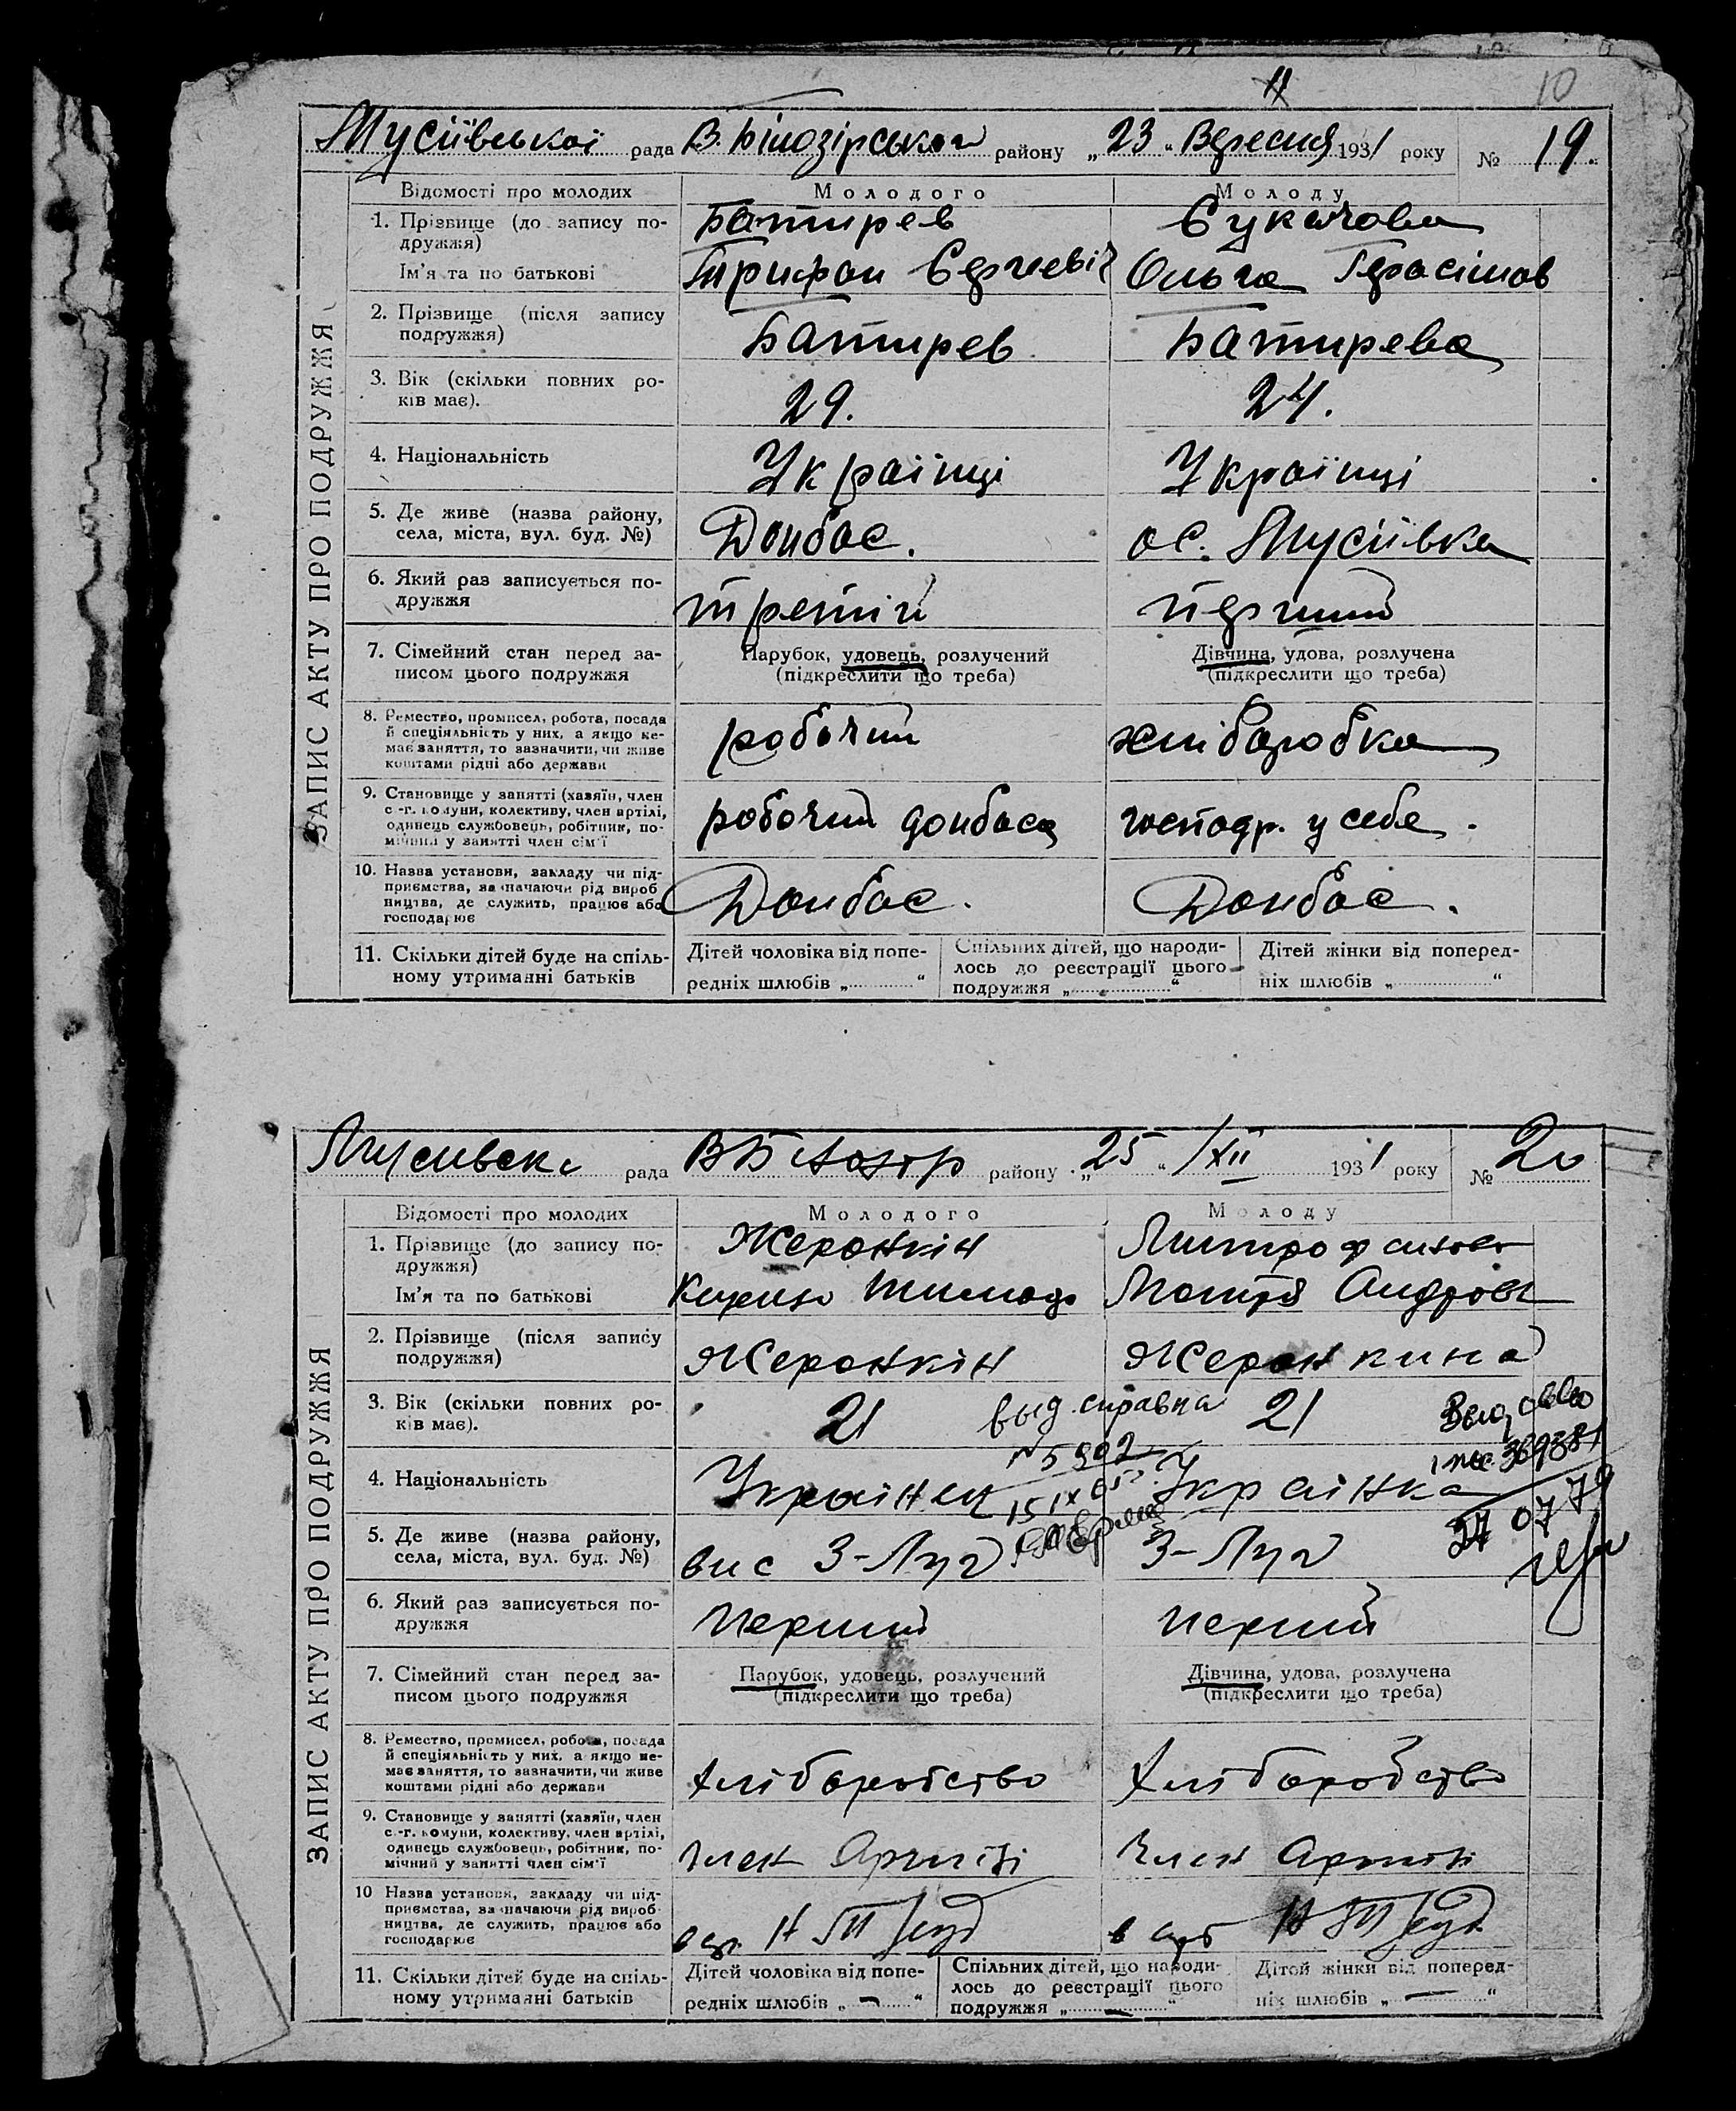 11
10
Мусіївської рада В. Білозірськом району „23“ Вересня 1931 року № 19.
ЗАПИС АКТУ ПРО ПОДРУЖЖЯ
Відомості про молодих Молодого Молоду
1. Прізвище (до запису по- Батирев Сукачова
дружжя)
Ім'я та по батькові Трифон Сергеевіч Ольга Герасімов
2. Прізвище (після запису
подружжя) Батирев Батирева
3. Вік (скільки повних ро-
ків має). 29. 24.
4. Національність Українці Українці
5. Де живе (назва району,
села, міста, вул. буд. №) Донбас. ос. Мусіівка
6. Який раз записується по-
дружжя третій перший
7. Сімейний стан перед за- Парубок, удовець, розлучений Дівчина, удова, розлучена
писом цього подружжя (підкреслити що треба) (підкреслити що треба)
8. Ремество, промисел, робота, посада
й спеціяльність у них, а якщо не-
має заняття, то зазначити, чи живе робочий хліборобка
коштами рідні або держави
9. Становище у занятті (хазяїн, член
с.-г. комуни, колективу, член артілі,
одинець службовець, робітник, по- робочий донбаса господр. у себе.
мічний у занятті член сім'ї
10. Назва установи, закладу чи під-
приємства, зазначаючи рід вироб
ництва, де служить, працює або Донбас. Донбас.
господарює
11. Скільки дітей буде на спіль- Дітей чоловіка від попе- Спільних дітей, що народи- Дітей жінки від поперед-
ному утриманні батьків редніх шлюбів „ “ лось до реєстрації цього ніх шлюбів „ “
подружжя „ “
рада району „25“ /XII 1931 року № 20
ЗАПИС АКТУ ПРО ПОДРУЖЖЯ
Відомості про молодих Молодого Молоду
1. Прізвище (до запису по- Жеронкін Митрофанова
дружжя)
Ім'я та по батькові Андров
2. Прізвище (після запису
подружжя) Жеронкін Жеронкина
3. Вік (скільки повних ро- 21 выд. справка 21
ків має).
№ 5902
4. Національність Українец Українка
15 IX 65
27 07 79
5. Де живе (назва району,
села, міста, вул. буд. №) вис З-Луг З-Луг
6. Який раз записується по-
дружжя перший перший
7. Сімейний стан перед за- Парубок, удовець, розлучений Дівчина, удова, розлучена
писом цього подружжя (підкреслити що треба) (підкреслити що треба)
8. Ремество, промисел, робота, посада
й спеціяльність у них, а якщо не-
має заняття, то зазначити, чи живе
коштами рідні або держави хліборобство хліборобство
9. Становище у занятті (хазяїн, член
с.-г. комуни, колективу, член артілі,
одинець службовець, робітник, по-
мічний у занятті член сім'ї Член Артілі Член Артілі
10 Назва установи, закладу чи під-
приємства, зазначаючи рід вироб-
ництва, де служить, працює або
господарює
11. Скільки дітей буде на спіль- Дітей чоловіка від попе- Спільних дітей, що народи- Дітей жінки від поперед-
ному утриманні батьків редніх шлюбів „ — “ лось до реєстрації цього ніх шлюбів „ — “
подружжя „ — “